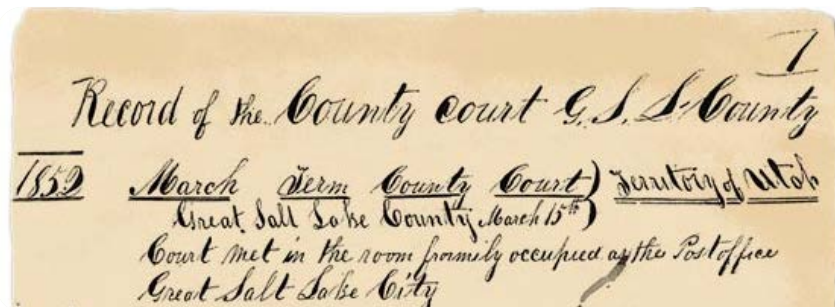 1
Record of the County court G. S. L. County
1852 March Term County Court) Territory of Utah
Great Salt Lake County March 15th)
Court met in the room formily occupied as the Postoffice
Great Salt Lake City